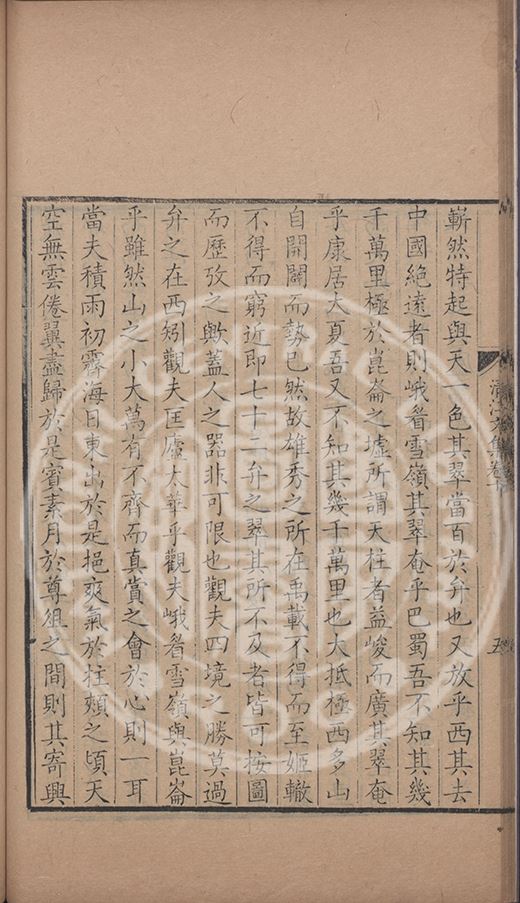 嶄然特起與天一色其翠當百於弁也又放乎西其去
中國絶遠者則峨眉雪嶺其翠奄乎巴蜀吾不知其幾
千萬里極於崑崙之墟所謂天柱者益峻而廣其翠奄
乎康居大夏吾又不知其幾千萬里也大抵極西多山
自開闢而勢已然故雄秀之所在禹載不得而至姬轍
不得而窮近即七十二弁之翠其所不及者皆可按圖
而歷攷之歟蓋人之器非可限也觀夫四境之勝莫過
弁之在西矧觀夫匡廬太華乎觀夫峨眉雪嶺與崑崙
乎雖然山之小大萬有不齊而真賞之會於心則一耳
當夫積雨初霽海日東出於是挹爽氣於柱頰之頃天
空無雲倦翼盡歸於是賓素月於尊俎之間則其寄興
清江文集卷十
五